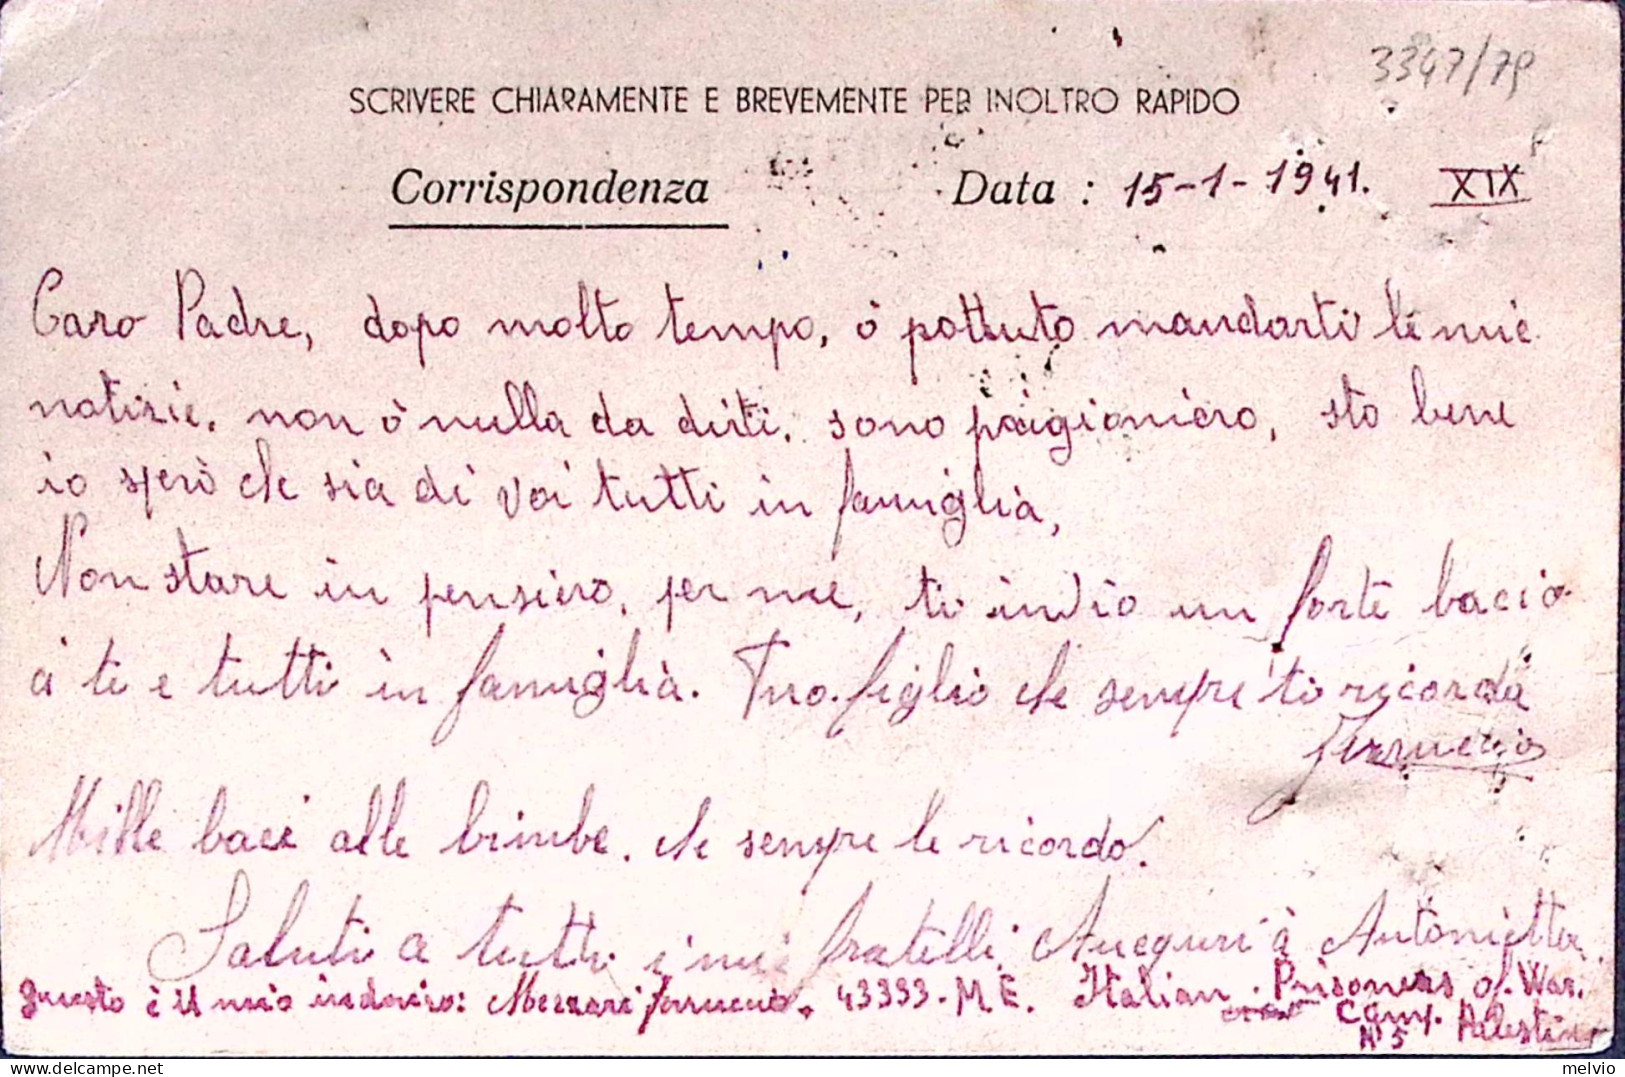 3347/79
SCRIVERE CHIARAMENTE E BREVEMENTE PER INOLTRO RAPIDO
Corrispondenza Data : 15-1-1941. XIX
Caro Padre, dopo molto tempo, ò pottuto mandarti le mie
notizie. non ò nulla da dirti. sono prigioniero, sto bene
io sperò che sia di voi tutti in famiglia,
Non stare in pensiero, per me, ti invio un forte bacio
à te e tutti in famiglia. Tuo figlio che sempre ti ricorda
Ferruccio
Mille baci alle bimbe. che sempre le ricordo.
Saluti a tutti i miei fratelli Aueguri à Antonietta
Questo è il mio indavirso: Mezzari Ferruccio. 43393-M.E. Italian Prisoners of. War.
Camp. Palestina
N° 5
melvio